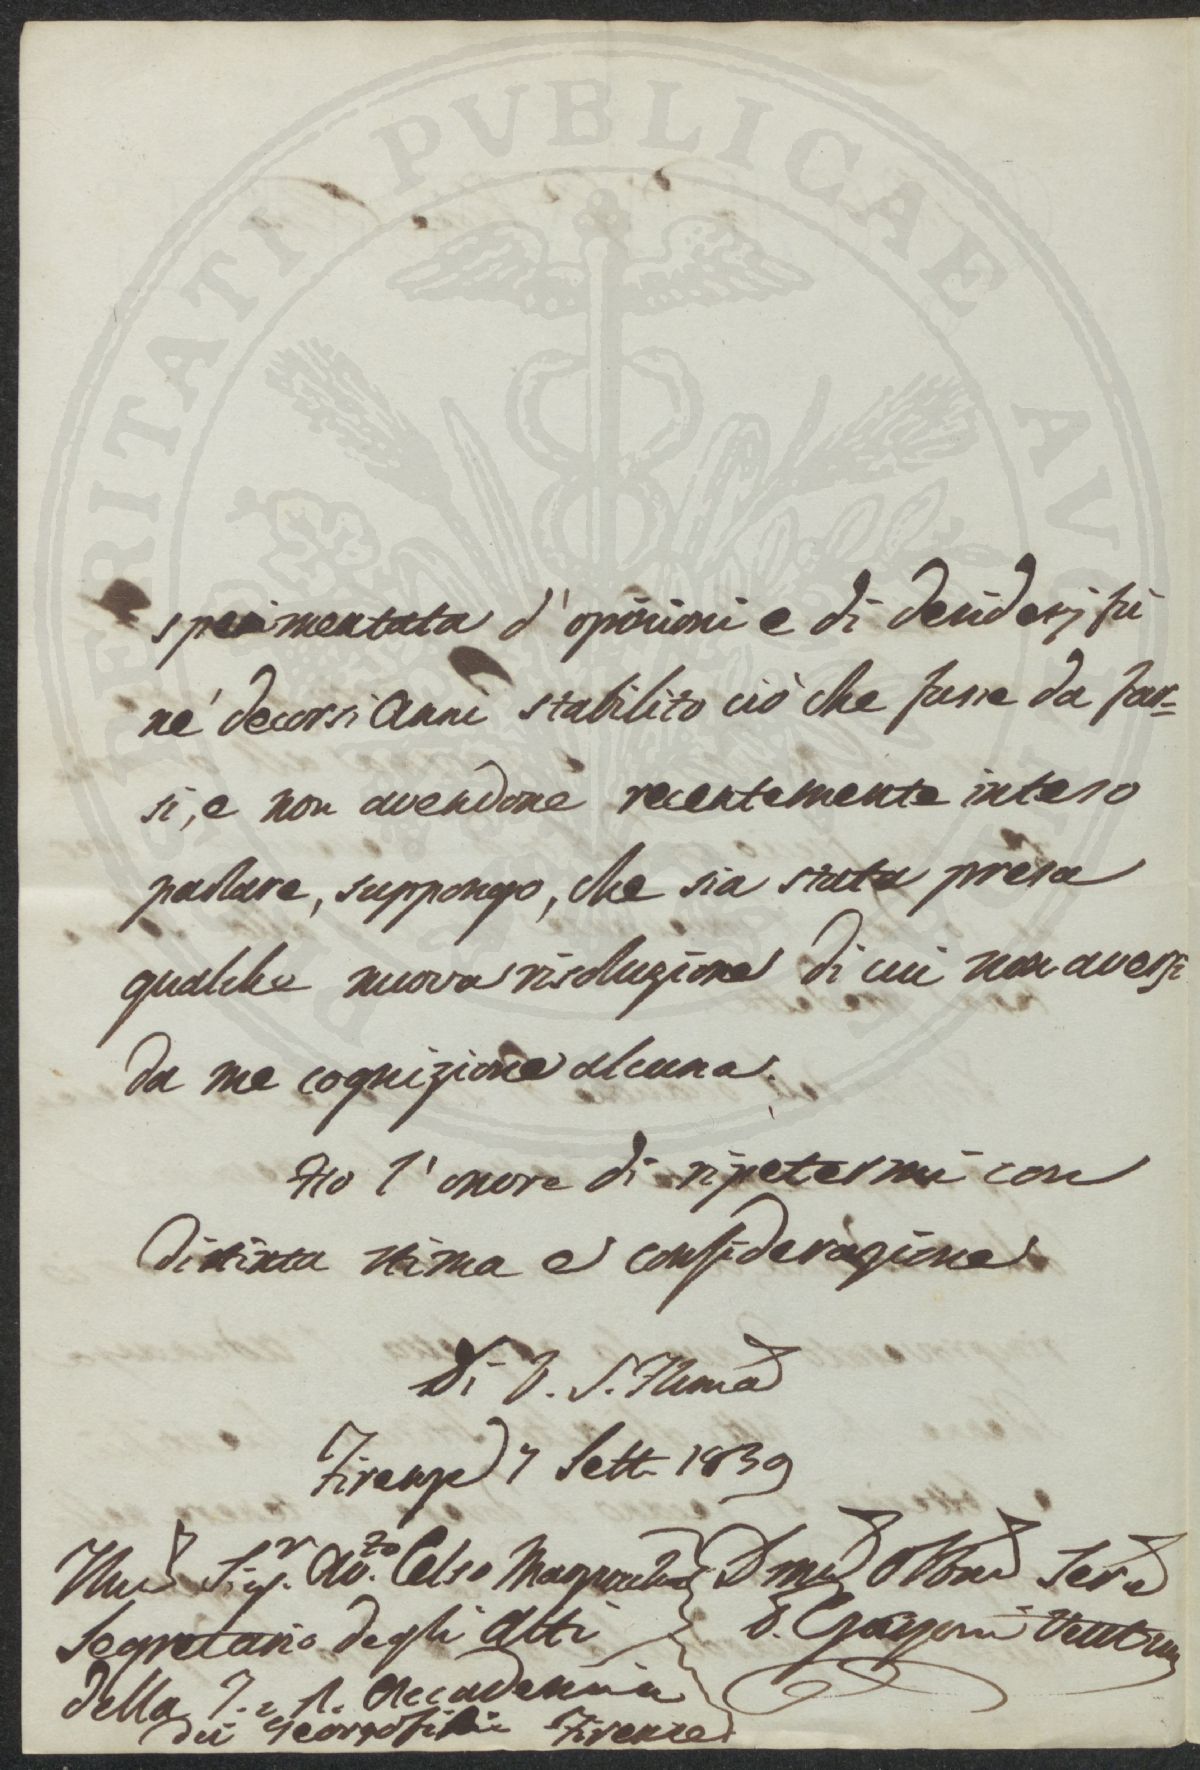 PROSPERITATI PVBLICAE AVGENDAE
sperimentata d'opinioni e di desiderj fu
né decorsi Anni stabilito ciò che fusse da far=
si, e non avendone recentemente inteso
parlare, suppongo, che sia stata presa
qualche nuova risoluzione di cui non aversi
da me cognizione alcuna.
Ho l'onore di ripetermi con
distinta stima e considerazione
Di V. S. Illma
Firenze 7 Sett. 1839
Illmo Sigr. Avo. Celso Marzucchi
Segretario degli Atti
della I. e R. Accademia
dei Georgofili Firenze
Dmo Obbmo Serve